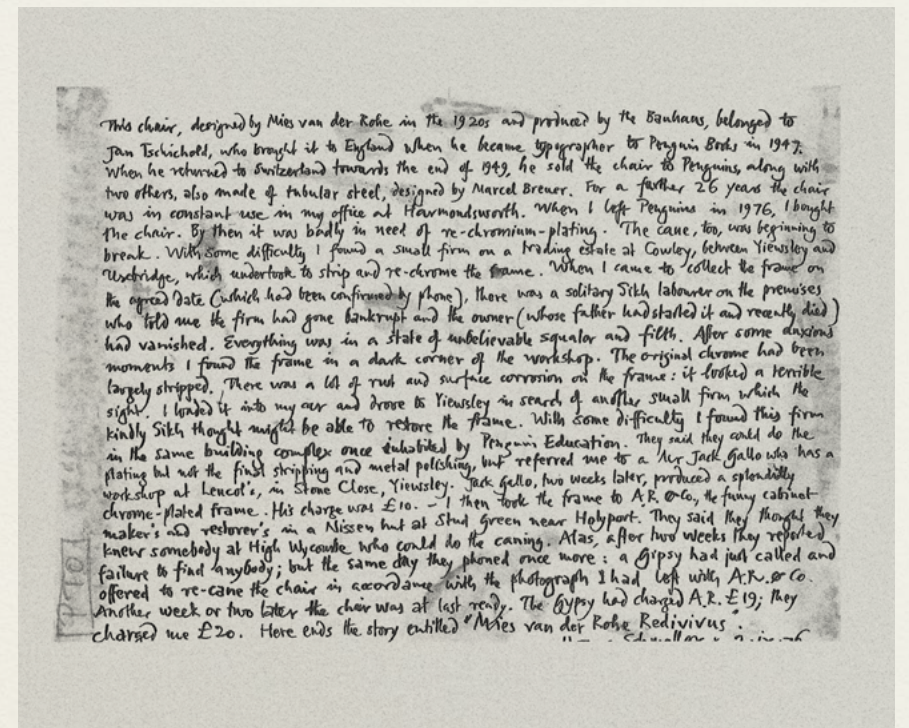 This chair, designed by Mies van der Rohe in the 1920s and produced by the Bauhaus, belonged to
Jan Tschichold, who brought it to England when he became typographer to Penguin Books in 1947.
When he returned to Switzerland towards the end of 1949, he sold the chair to Penguins, along with
two others, also made of tubular steel, designed by Marcel Breuer. For a further 26 years the chair
was in constant use in my office at Harmondsworth. When I left Penguins in 1976, I bought
the chair. By then it was badly in need of re-chromium-plating. The cane, too, was beginning to
break. With some difficulty I found a small firm on a trading estate at Cowley, between Yiewsley and
Uxbridge, which undertook to strip and re-chrome the frame. When I came to collect the frame on
the agreed date (which had been confirmed by phone), there was a solitary Sikh labourer on the premises
who told me the firm had gone bankrupt and the owner (whose father had started it and recently died)
had vanished. Everything was in a state of unbelievable squalor and filth. After some anxious
moments I found the frame in a dark corner of the workshop. The original chrome had been
largely stripped. There was a lot of rust and surface corrosion on the frame: it looked a terrible
sight. I loaded it into my car and drove to Yiewsley in search of another small firm which the
kindly Sikh thought might be able to restore the frame. With some difficulty I found this firm
in the same building complex once inhabited by Penguin Education. They said they could do the
plating but not the final stripping and metal polishing, but referred me to a Mr Jack Gallo who has a
workshop at Lencol's, in Stone Close, Yiewsley. Jack Gallo, two weeks later, produced a splendidly
chrome-plated frame. His charge was £10. – I then took the frame to A.R. & Co., the funny cabinet
maker's and restorer's in a Nissen hut at Stud Green near Holyport. They said they thought they
knew somebody at High Wycombe who could do the caning. Alas, after two weeks they reported
failure to find anybody; but the same day they phoned once more: a Gipsy had just called and
offered to re-cane the chair in accordance with the photograph I had left with A.R. & Co.
Another week or two later the chair was at last ready. The Gypsy had charged A.R. £19; they
charged me £20. Here ends the story entitled "Mies van der Rohe Redivivus".